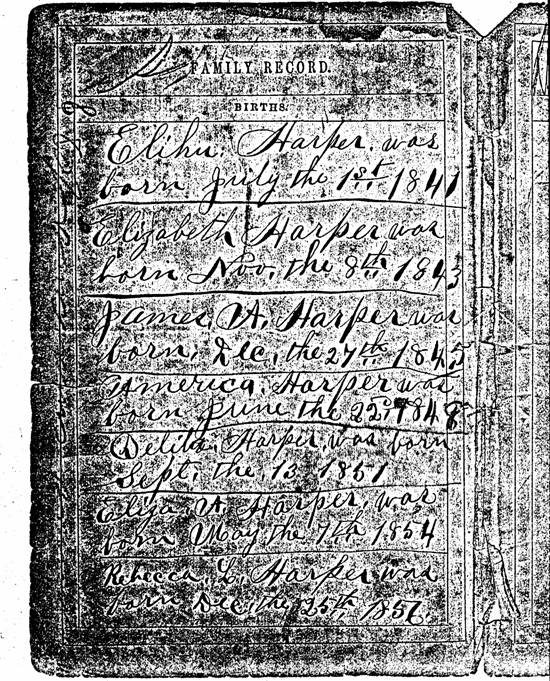 FAMILY RECORD.
BIRTHS.
Elihu. Harper. was
born July the 1st 1841
Elizabeth Harper was
born Nov. the 8th 1843
James, A. Harper was
born, Dec, the 27th 1845
America. Harper was
born June the 22, 1848
Delila. Harper, was born
Sept, the, 13, 1851
Eliza A. Harper, was
born May the 7th 1854
Rebecca, L. Harper was
born Dec, the, 25th 1856